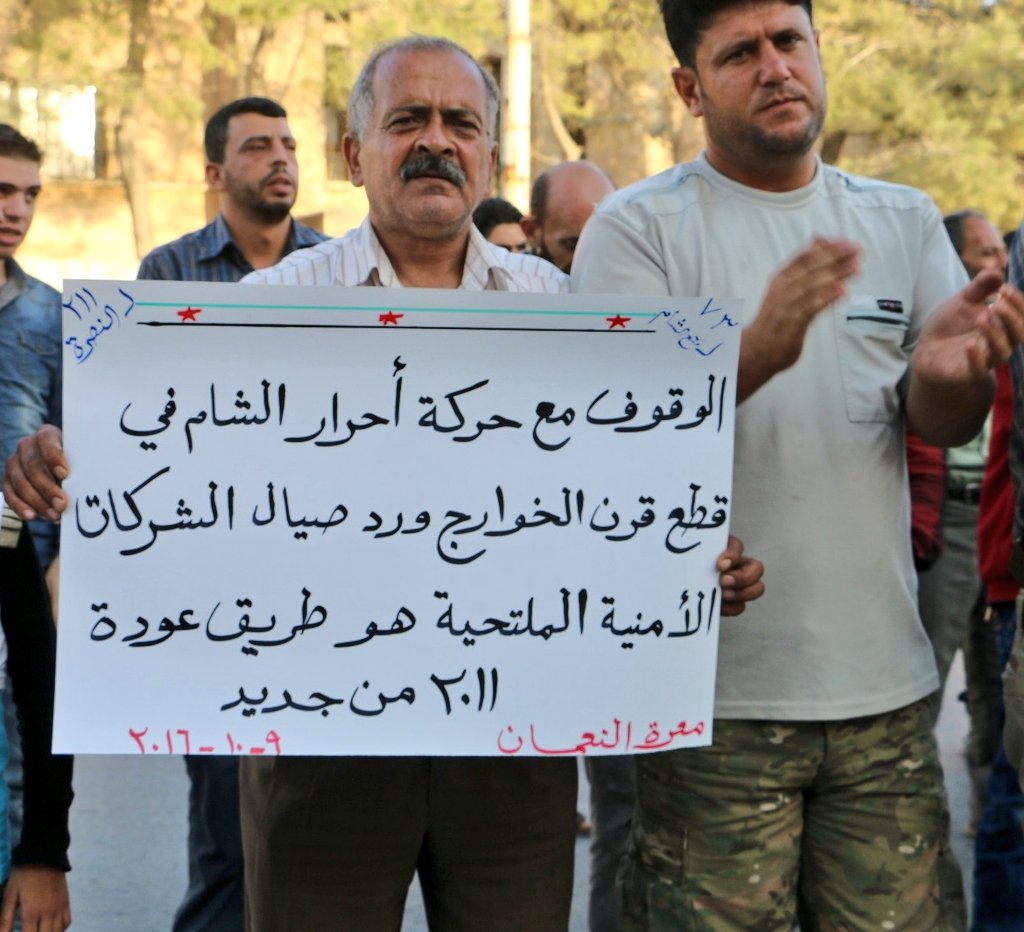 الوقوف مع حركة أحرار الشام في
قطع قرن الخوارج ورد صيال الشركات
الأمنية الملتحية هو طريق عودة
٢٠١١ من جديد
معرة النعمان
٩-١٠-٢٠١٦